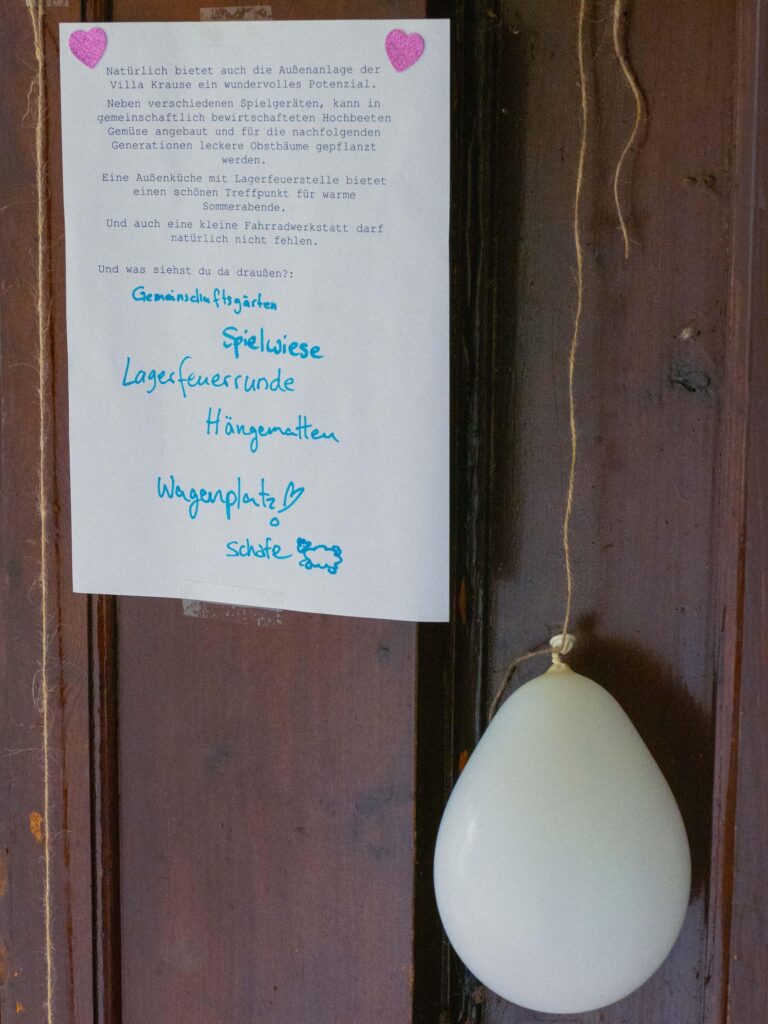 Natürlich bietet auch die Außenanlage der
Villa Krause ein wundervolles Potenzial.
Neben verschiedenen Spielgeräten, kann in
gemeinschaftlich bewirtschafteten Hochbeeten
Gemüse angebaut und für die nachfolgenden
Generationen leckere Obstbäume gepflanzt
werden.
Eine Außenküche mit Lagerfeuerstelle bietet
einen schönen Treffpunkt für warme
Sommerabende.
Und auch eine kleine Fahrradwerkstatt darf
natürlich nicht fehlen.
Und was siehst du da draußen?:
Gemeinschaftsgärten
Spielwiese
Lagerfeuerrunde
Hängematten
Wagenplatz
Schafe